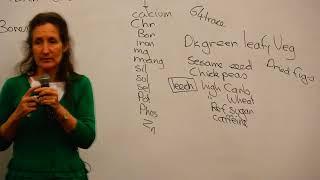 calcium
Chr
Bor
iron
mg
mang
sil
sol
sel
Pot
Phos
Zn
64 trace
Dk green leafy Veg
Sesame seed
Dried figs
Chick peas
leech high Carb
" Wheat
Ref Sugar
caffeine